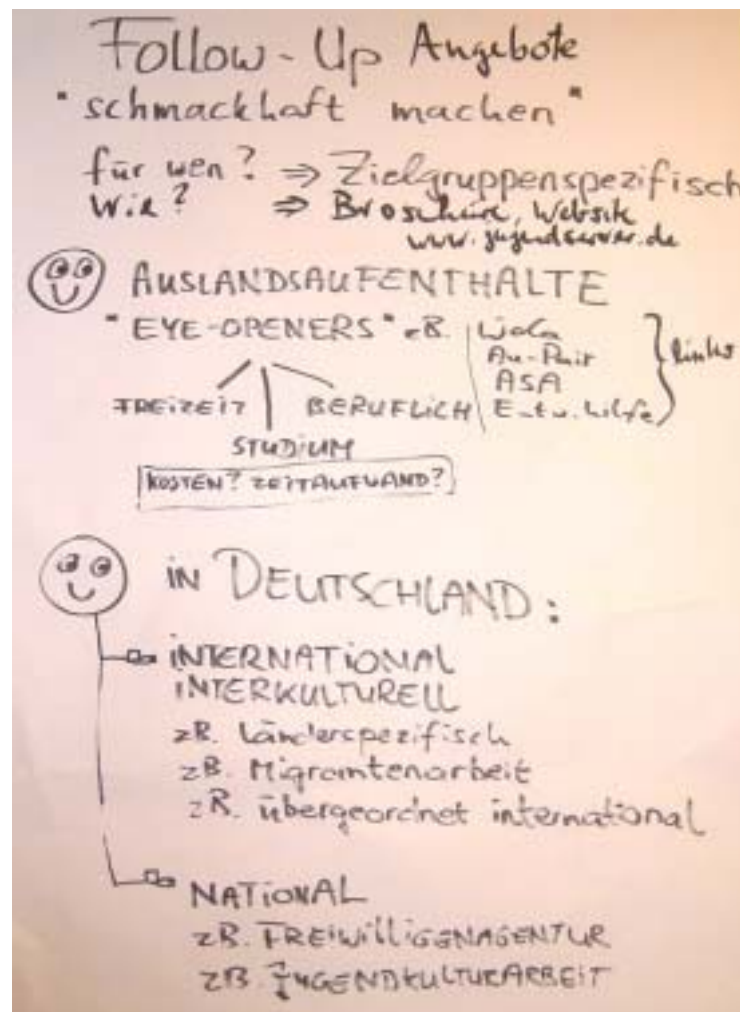 Follow-Up Angebote
"schmackhaft machen"
für wen? ⇒ Zielgruppenspezifisch
Wie? ⇒ Broschüre, Website
www.jugendserver.de
AUSLANDSAUFENTHALTE
"EYE-OPENERS" zB.
Au-Pair
ASA
Entw.hilfe
} links
FREIZEIT BERUFLICH
STUDIUM
KOSTEN? ZEITAUFWAND?
IN DEUTSCHLAND:
INTERNATIONAL
INTERKULTURELL
zB. Länderspezifisch
zB. Migrantenarbeit
zB. übergeordnet international
NATIONAL
zB. FREIWILLIGENAGENTUR
zB. JUGENDKULTURARBEIT